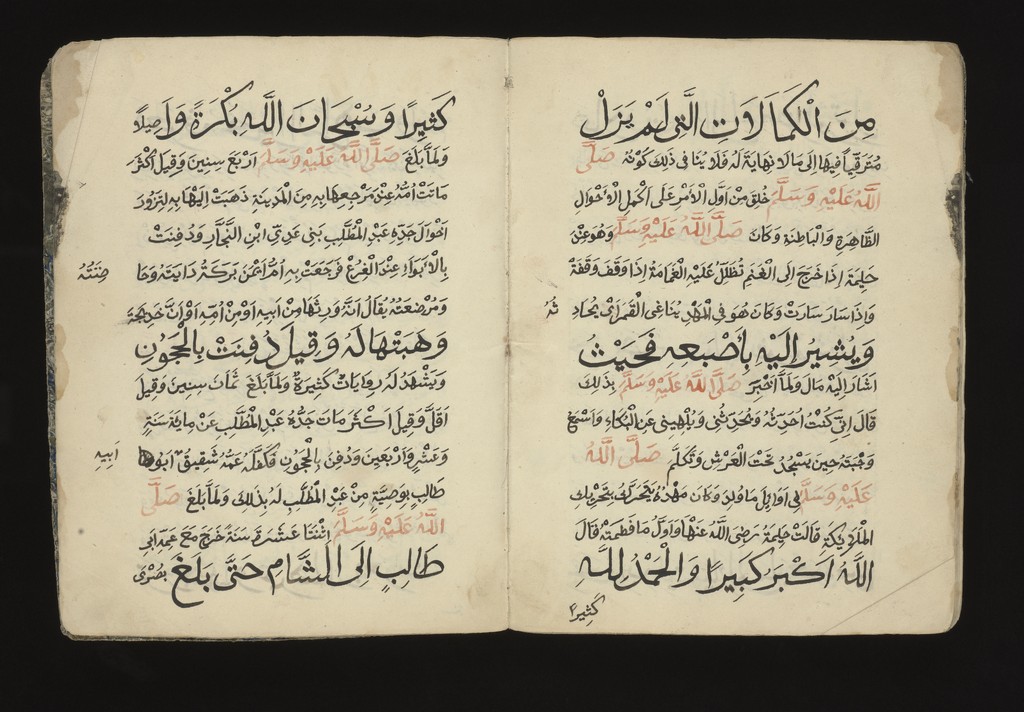 مِنَ الْكَمَالَاتِ الَّتِى لَمْ يَزَلْ
مُتَرَقِّيًا فِيهَا اِلَى مَا لَا نِهَايَةَ لَهُ فَلَا يُنَافِى ذٰلِكَ كَوْنُهُ صَلَّى
اللّٰهُ عَلَيْهِ وَسَلَّمَ خُلِقَ مِنْ اَوَّلِ الْاَمْرِ عَلَى اَكْمَلِ الْاَحْوَالِ
الظَّاهِرَةِ وَالْبَاطِنَةِ وَكَانَ صَلَّى اللّٰهُ عَلَيْهِ وَسَلَّمَ وَهُوَ عِنْدَ
حَلِيمَةَ اِذَا خَرَجَ اِلَى الْغَنَمِ تُظَلِّلُ عَلَيْهِ الْغَمَامَةُ اِذَا وَقَفَ وَقَفَتْ
وَاِذَا سَارَ سَارَتْ وَكَانَ هُوَ فِى الْمَهْدِ يُنَاغِى الْقَمَرَ اَىْ يُحَادِ ثُهُ
وَيُشِيرُ اِلَيْهِ بِاَصْبَعِهِ فَحَيْثُ
اَشَارَ اِلَيْهِ مَالَ وَلَمَّا اَخْبَرَ صَلَّى اللّٰهُ عَلَيْهِ وَسَلَّمَ بِذٰلِكَ
قَالَ اِنِّى كُنْتُ اُحَدِّثُهُ وَيُحَدِّثُنِى وَيُلْهِينِى عَنِ الْبُكَاءِ وَاَسْمَعُ
وَجْبَتَهُ حِينَ يَسْجُدُ تَحْتَ الْعَرْشِ وَتَكَلَّمَ صَلَّى اللّٰهُ
عَلَيْهِ وَسَلَّمَ فِى اَوَائِلِ مَا وُلِدَ وَكَانَ مَهْدُهُ يَتَحَرَّكُ بِتَحْرِيكِ
الْمَلَائِكَةِ قَالَتْ حَلِيمَةُ رَضِىَ اللّٰهُ عَنْهَا وَاَوَّلُ مَا فَطَمْتُهُ قَالَ
اللّٰهُ اَكْبَرُ كَبِيرًا وَالْحَمْدُ لِلّٰهِ
كَثِيرًا
كَثِيرًا وَسُبْحَانَ اللّٰهِ بُكْرَةً وَاَصِيلًا
وَلَمَّا بَلَغَ صَلَّى اللّٰهُ عَلَيْهِ وَسَلَّمَ اَرْبَعَ سِنِينَ وَقِيلَ اَكْثَرَ
مَاتَتْ اُمُّهُ عِنْدَ مَرْجِعِهَا بِهِ مِنَ الْمَدِينَةِ ذَهَبَتْ اِلَيْهَا بِهِ لِتَزُورَ
اَخْوَالَ جَدِّهِ عَبْدِ الْمُطَّلِبِ بَنِى عَدِىِّ ابْنِ النَّجَّارِ وَدُفِنَتْ
بِالْاَبْوَاءِ عِنْدَ الْفُرْعِ فَرَجَعَتْ بِهِ اُمُّ اَيْمَنَ بَرَكَةُ دَايَتُهُ وَحَا ضِنَتُهُ
وَمُرْضِعَتُهُ يُقَالُ اَنَّهُ وَرِثَهَا مِنْ اَبِيهِ اَوْ مِنْ اُمِّهِ اَوْ اَنَّ خَدِيجَةَ
وَهَبَتْهَا لَهُ وَقِيلَ دُفِنَتْ بِالْحَجُونِ
وَيَشْهَدُ لَهُ رِوَايَاتٌ كَثِيرَةٌ وَلَمَّا بَلَغَ ثَمَانَ سِنِينَ وَقِيلَ
اَقَلَّ وَقِيلَ اَكْثَرَ مَاتَ جَدُّهُ عَبْدُ الْمُطَّلِبِ عَنْ مِايَةِ سَنَةٍ
وَعَشْرٍ وَاَرْبَعِينَ وَدُفِنَ بِالْحَجُونِ فَكَفَلَهُ عَمُّهُ شَقِيقُ اَبِيهِ اَبُو
طَالِبٍ بِوَصِيَّةٍ مِنْ عَبْدِ الْمُطَّلِبِ لَهُ بِذٰلِكَ وَلَمَّا بَلَغَ صَلَّى
اللّٰهُ عَلَيْهِ وَسَلَّمَ اِثْنَتَا عَشَرَةَ سَنَةً خَرَجَ مَعَ عَمِّهِ اَبِى
طَالِبٍ اِلَى الشَّامِ حَتَّى بَلَغَ بُصْرَى